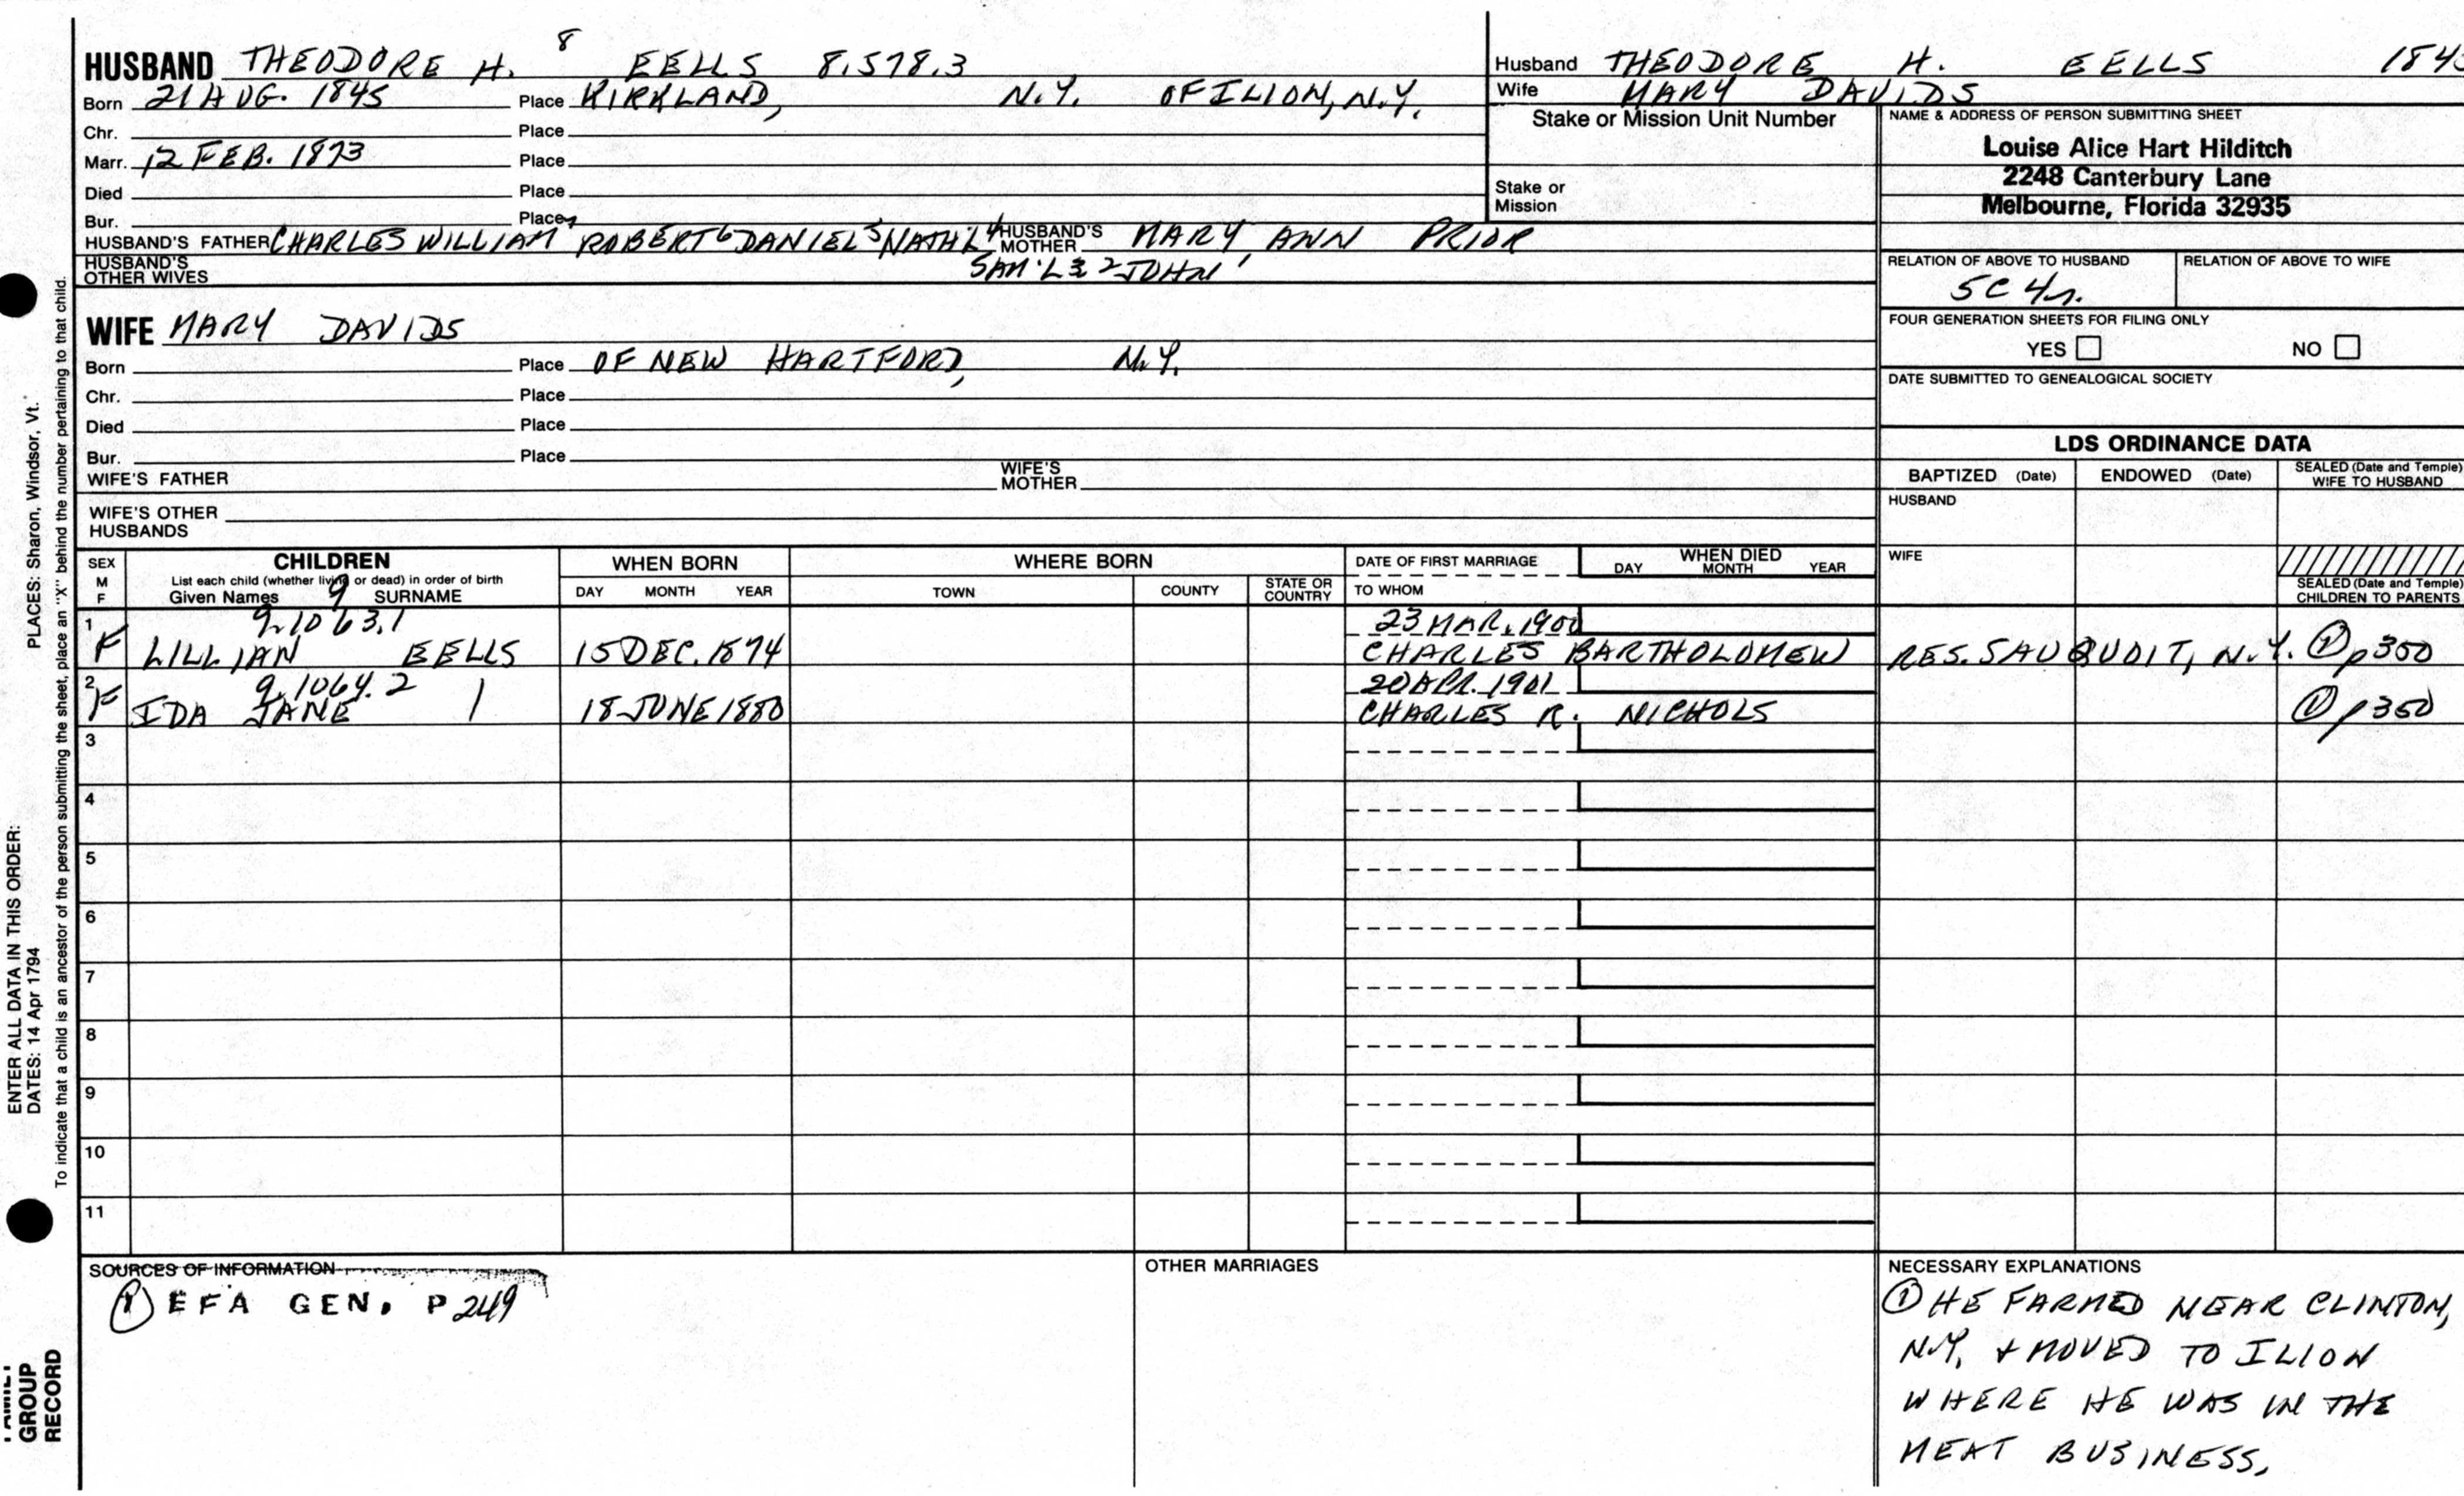 HUSBAND THEODORE H. 8 EELLS 8.578.3
Born 21 AUG. 1845 Place KIRKLAND, N.Y. OF ILION, N.Y.
Chr. Place
Marr. 12 FEB. 1873 Place
Died Place
Bur. Place
HUSBAND'S FATHER CHARLES WILLIAM 7 ROBERT 6 DANIEL 5 NATH'L 4 HUSBAND'S MOTHER MARY ANN PRIOR
HUSBAND'S OTHER WIVES SAM'L 3 2 JOHN 1
WIFE MARY DAVIDS
Born Place OF NEW HARTFORD, N.Y.
Chr. Place
Died Place
Bur. Place
WIFE'S FATHER WIFE'S MOTHER
WIFE'S OTHER HUSBANDS
Husband THEODORE H. EELLS
Wife MARY DAVIDS
Stake or Mission Unit Number
Stake or Mission
NAME & ADDRESS OF PERSON SUBMITTING SHEET
Louise Alice Hart Hilditch
2248 Canterbury Lane
Melbourne, Florida 32935
RELATION OF ABOVE TO HUSBAND RELATION OF ABOVE TO WIFE
5C 4r.
FOUR GENERATION SHEETS FOR FILING ONLY
YES NO
DATE SUBMITTED TO GENEALOGICAL SOCIETY
LDS ORDINANCE DATA
BAPTIZED (Date) ENDOWED (Date) SEALED (Date and Temple) WIFE TO HUSBAND
HUSBAND
WIFE
SEALED (Date and Temple) CHILDREN TO PARENTS
SEX M F
CHILDREN
List each child (whether living or dead) in order of birth
Given Names 9 SURNAME
WHEN BORN
DAY MONTH YEAR
WHERE BORN
TOWN COUNTY STATE OR COUNTRY
DATE OF FIRST MARRIAGE
TO WHOM
WHEN DIED
DAY MONTH YEAR
1 9.1063.1 23 MAR. 1900
F LILLIAN EELLS 15 DEC. 1874 CHARLES BARTHOLOMEW RES. SAUQUOIT, N.Y. ① p350
2 9.1064.2 20 APR. 1901
F IDA JANE | 18 JUNE 1880 CHARLES R. NICHOLS ① p350
3
4
5
6
7
8
9
10
11
SOURCES OF INFORMATION
① EFA GEN. P 249
OTHER MARRIAGES
NECESSARY EXPLANATIONS
① HE FARMED NEAR CLINTON,
N.Y. + MOVED TO ILION
WHERE HE WAS IN THE
MEAT BUSINESS.
ENTER ALL DATA IN THIS ORDER:
DATES: 14 Apr 1794 PLACES: Sharon, Windsor, Vt.
To indicate that a child is an ancestor of the person submitting the sheet, place an "X" behind the number pertaining to that child.
FAMILY
GROUP
RECORD